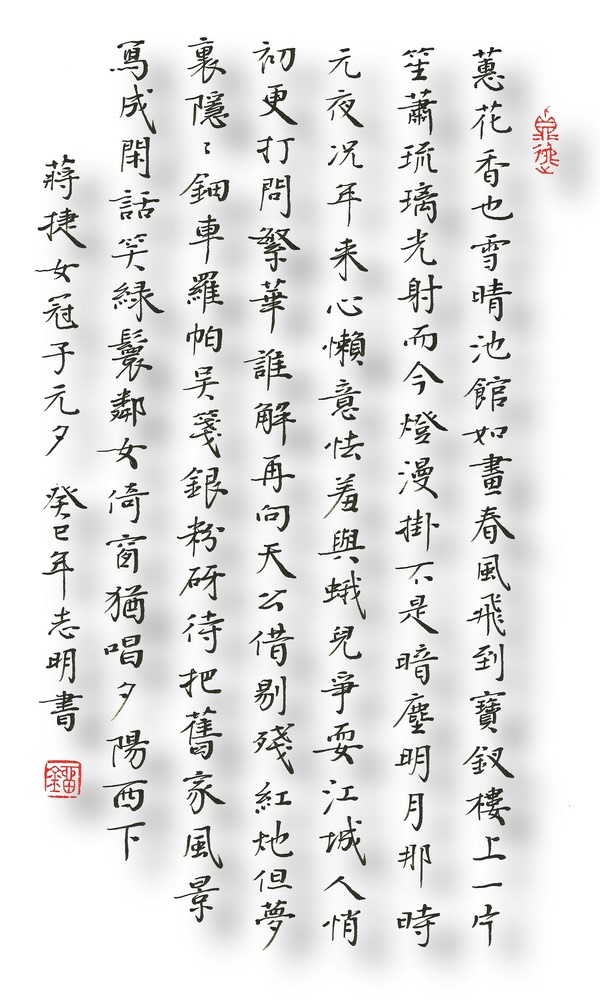 蕙花香也雪晴池館如畫春風飛到寶釵樓上一片
笙蕭琉璃光射而今燈漫掛不是暗塵明月那時
元夜况年来心懶意怯羞與蛾兒爭耍江城人悄
初更打問繁華誰解再向天公借剔殘紅灺但夢
裏隱〻鈿車羅帕吴箋銀粉砑待把舊家風景
寫成閑話笑緑鬟鄰女倚窗猶唱夕陽西下
蔣捷女冠子元夕 癸巳年志明書